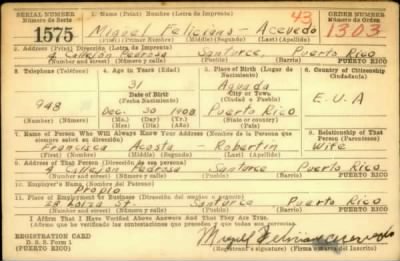 SERIAL NUMBER 1. Name (Print) Nombre (Letra de Imprenta) ORDER NUMBER
Número de Serie Número de Orden
43
1575 Miguel Feliciano - Acevedo 1303
(First) (Primer Nombre) (Middle) (Segundo) (Last) (Apellido)
2. Address (Print) Dirección (Letra de Imprenta)
4 Callejon Pedrosa Santurce, Puerto Rico
(Number and street) (Número y calle) PUERTO RICO
3. Telephone (Teléfono) 4. Age in Years (Edad) 5. Place of Birth (Lugar de Nacimiento) 6. Country of Citizenship (Ciudadanía)
31 Aguada
Date of Birth City or Town
(Fecha de Nac.) (Ciudad o Pueblo)
948 Dec. 30 1908 Puerto Rico E.U.A
(Mo.) (Day) (Yr.) State or country)
(Mes) (Día) (Año) (Estado o País)
7. Name of Person Who Will Always Know Your Address (Nombre de la Persona que siempre sabrá su dirección) 8. Relationship of That Person (Parentesco)
Francisca Acosta - Robertin Wife
(First) (Nombre) (Middle) (Segundo) (Last) (Apellido)
9. Address of That Person (Dirección de esa persona)
4 Callejon Pedrosa Santurce Puerto Rico
(Number and street) (Número y calle) PUERTO RICO
10. Employer's Name (Nombre del Patrono)
Propio
11. Place of Employment or Business (Dirección del empleo o negocio)
28 Loiza St. Santurce Puerto Rico
(Number and street) (Número y calle) PUERTO RICO
I Affirm That I Have Verified Above Answers And That They Are True.
(Afirmo que he verificado las contestaciones que preceden y que todas son ciertas)
REGISTRATION CARD
D. S. S. Form 1
(PUERTO RICO)
Miguel Feliciano Acevedo
Registrant's signature) (Firma del Inscrito)